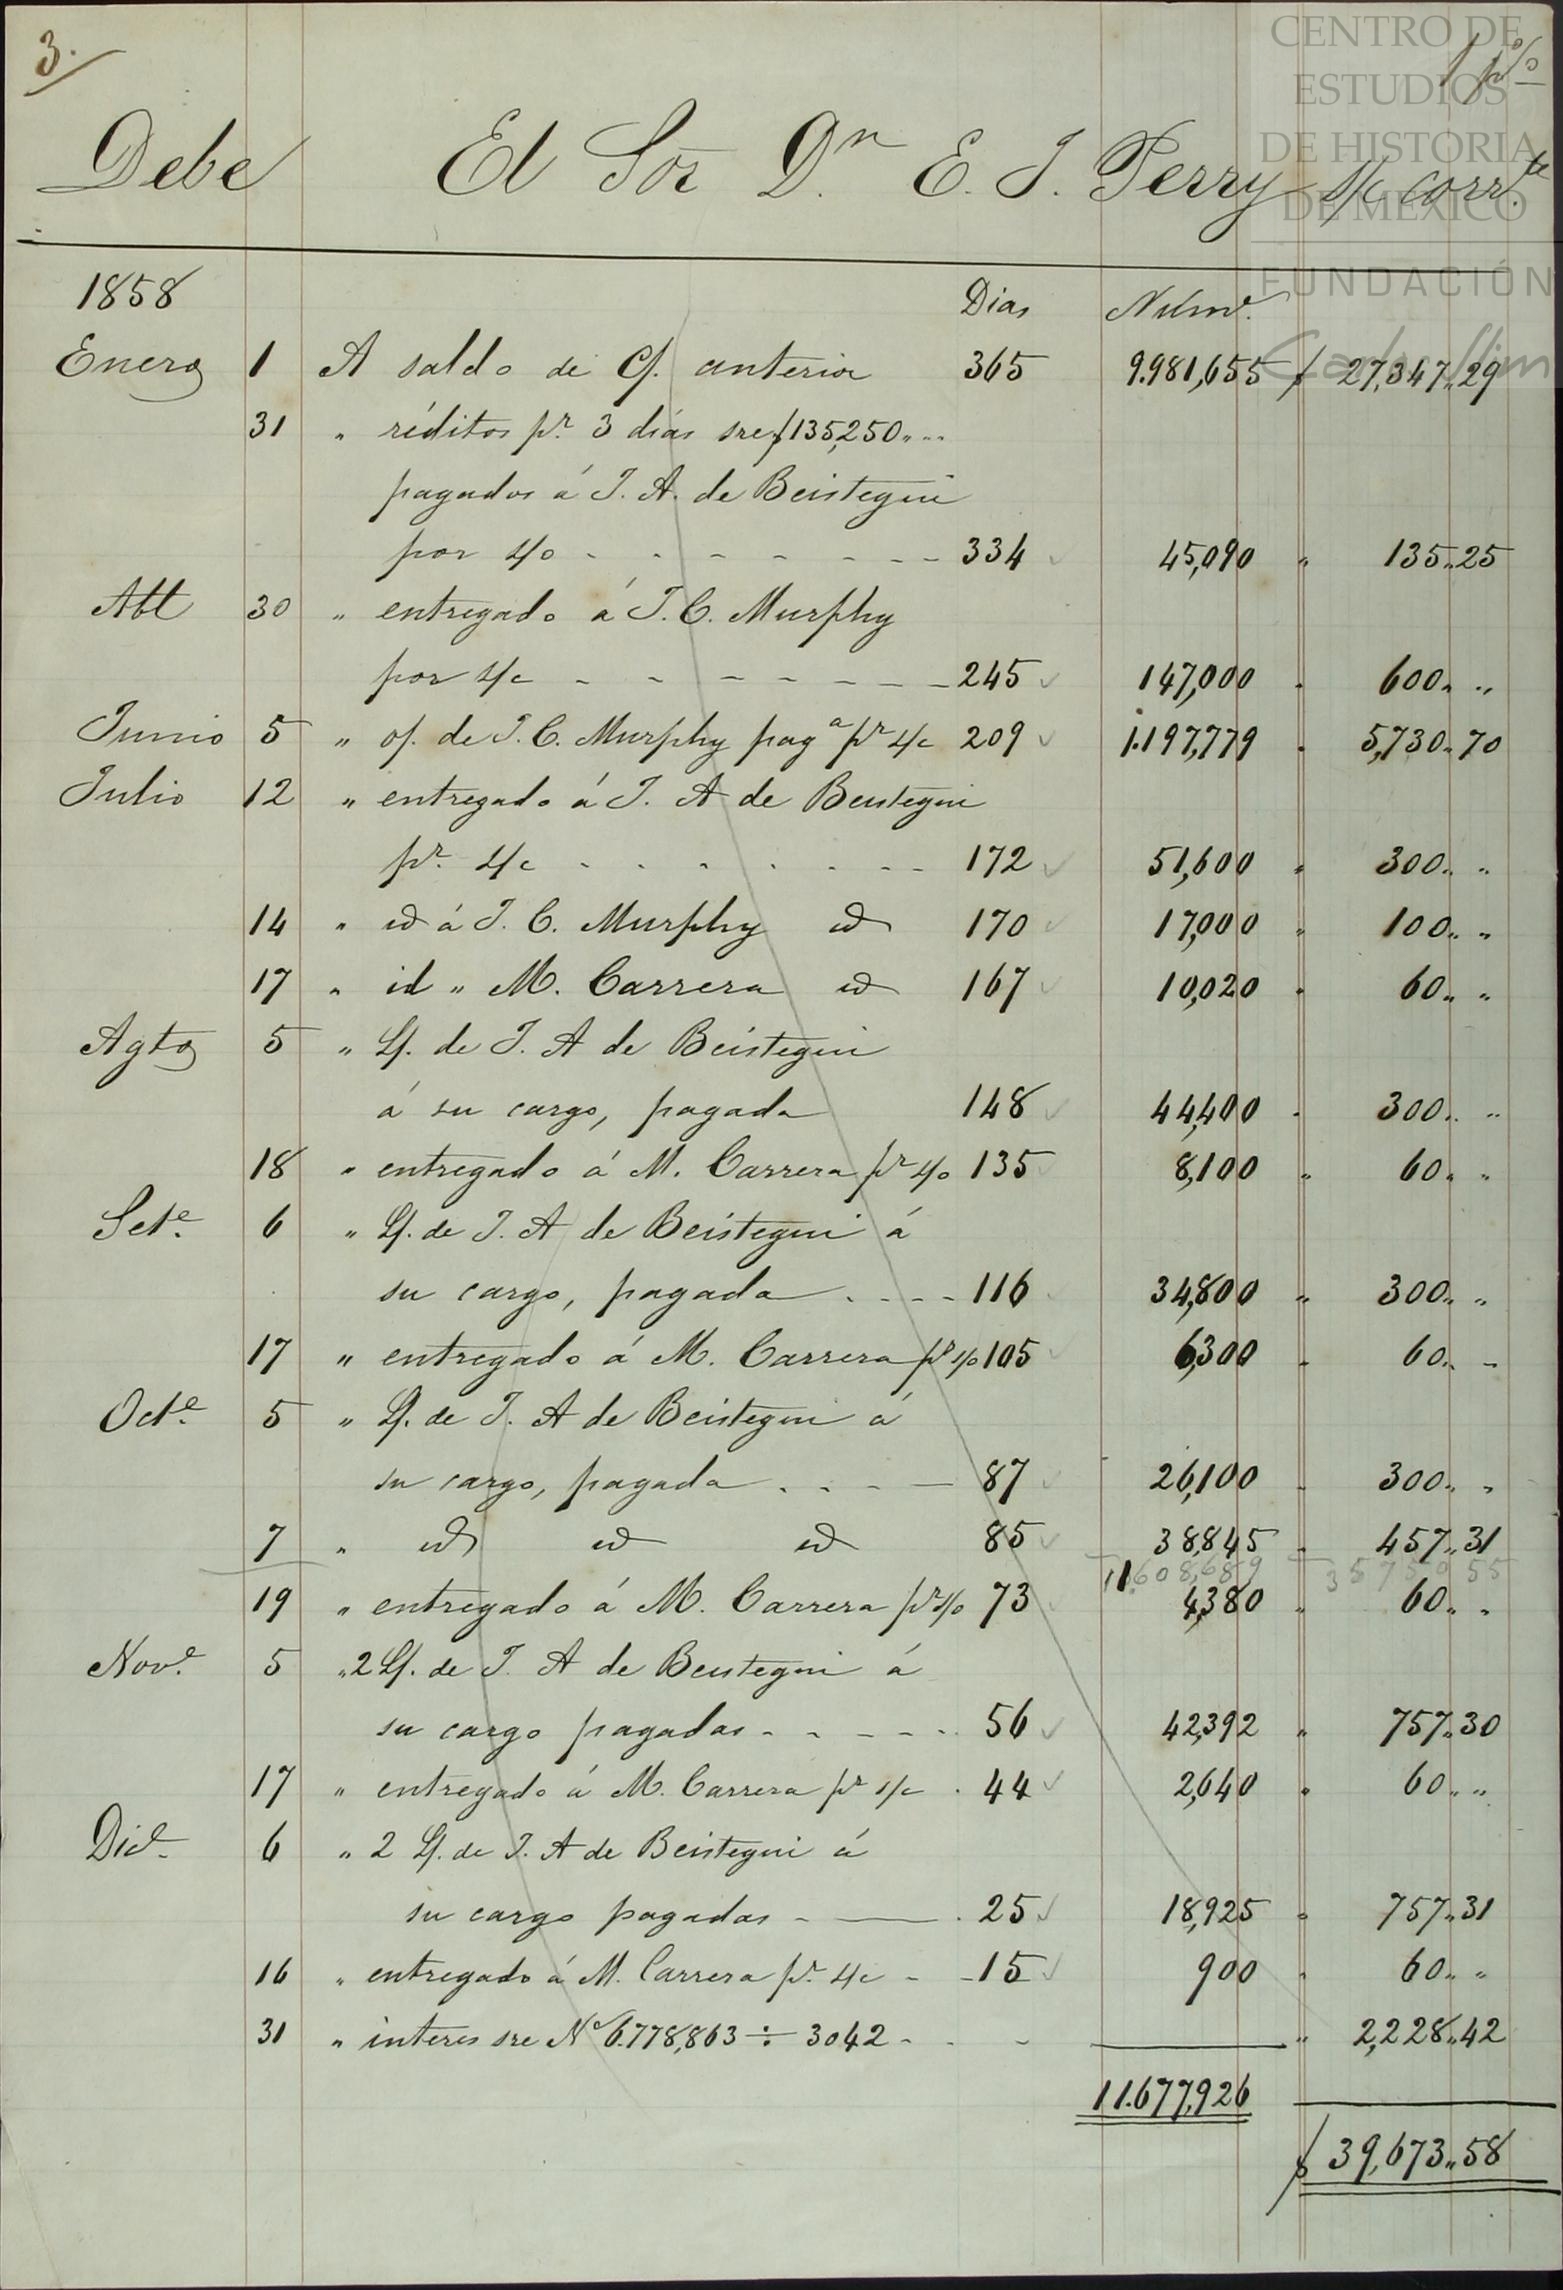 3.
1 p%
CENTRO DE
ESTUDIOS
DE HISTORIA
DE MEXICO
FUNDACIÓN
Carlos Slim
Debe El Sor Dn. E. J. Perry s/c corr.te
1858 Dias Núms.
Enero 1 A saldo de c/. anterior 365 9.981,655 $ 27,347.. 29
31 " réditos pr. 3 dias sre $135,250.. ..
pagados á J. A. de Beistegui
por s/o - - - - - - - 334 45,090 " 135.. 25
Abl 30 " entregado á J. C. Murphy
por s/c - - - - - - - 245 147,000 " 600.. ..
Junio 5 " o/. de J. C. Murphy paga pr s/c 209 1.197,779 " 5,730.. 70
Julio 12 " entregado á J. A de Beistegui
pr. s/c - - - - - - - 172 51,600 " 300.. ..
14 " id á J. C. Murphy id 170 17,000 " 100.. ..
17 " id " M. Carrera id 167 10,020 " 60.. ..
Agto 5 " L/. de J. A de Beistegui
á su cargo, pagada 148 44,400 " 300.. ..
18 " entregado á M. Carrera pr s/o 135 8,100 " 60.. ..
Sete. 6 " L/. de J. A de Beistegui á
su cargo, pagada - - - - 116 34,800 " 300.. ..
17 " entregado á M. Carrera pr s/o 105 6,300 " 60.. ..
Octe. 5 " L/. de J. A de Beistegui á
su cargo, pagada - - - - 87 26,100 " 300.. ..
7 " id id id 85 38,845 " 457.. 31
11.608,689 35750 55
19 " entregado á M. Carrera pr s/o 73 4,380 " 60.. ..
Nove. 5 " 2 L/. de J. A de Beistegui á
su cargo pagadas - - - - - 56 42,392 " 757.. 30
17 " entregado á M. Carrera pr s/c - 44 2,640 " 60.. ..
Dice. 6 " 2 L/. de J. A de Beistegui á
su cargo pagadas - — - 25 18,925 " 757.. 31
16 " entregado á M. Carrera pr. s/c - - 15 900 " 60.. ..
31 " interes sre No 6.778,863 ÷ 3042 - - - " 2,228.. 42
11.677,926
$ 39,673.. 58